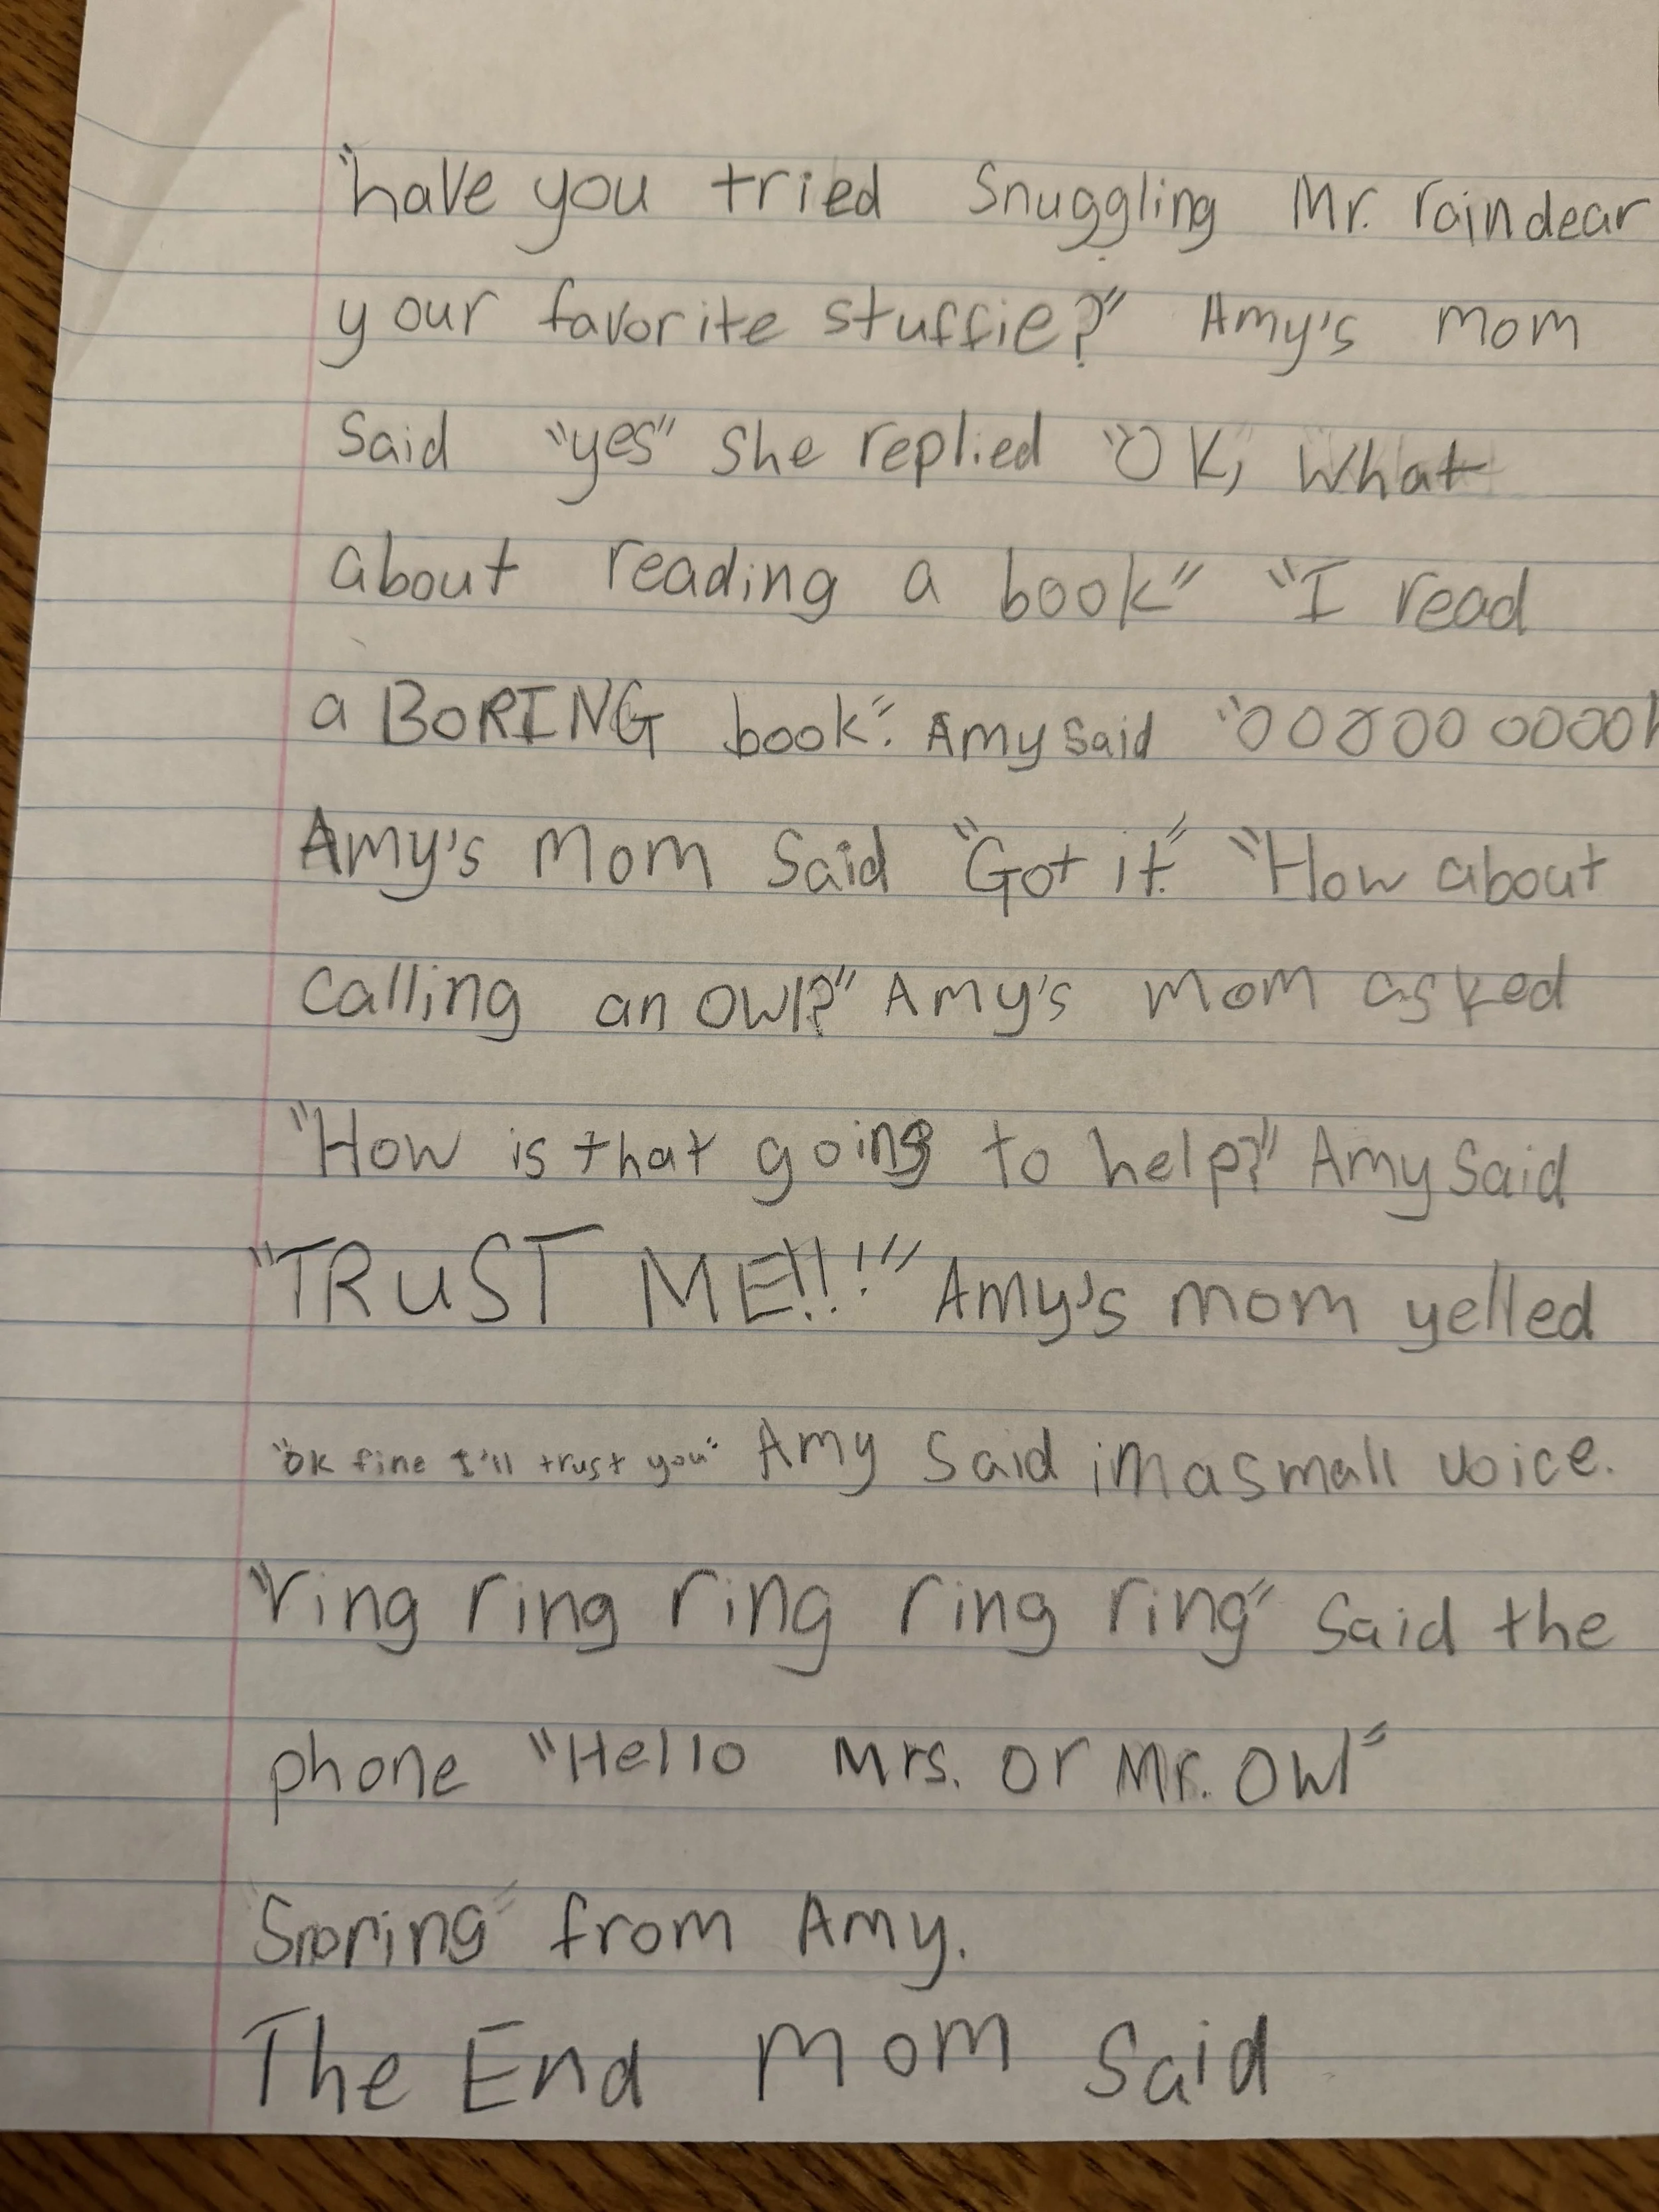 "have you tried Snuggling Mr. raindear
your favorite stuffie?" Amy's mom
Said "yes" She replied "OK, What
about reading a book" "I read
a BORING book". Amy said "0000000000h
Amy's Mom Said "Got it." "How about
Calling an OWl?" Amy's mom asked
"How is that going to help?" Amy Said
"TRUST ME!!!" Amy's mom yelled
"ok fine I'll trust you" Amy Said in a small voice.
"ring ring ring ring ring" Said the
phone "Hello Mrs. or Mr. OWl"
"Snoring" from Amy.
The End Mom Said